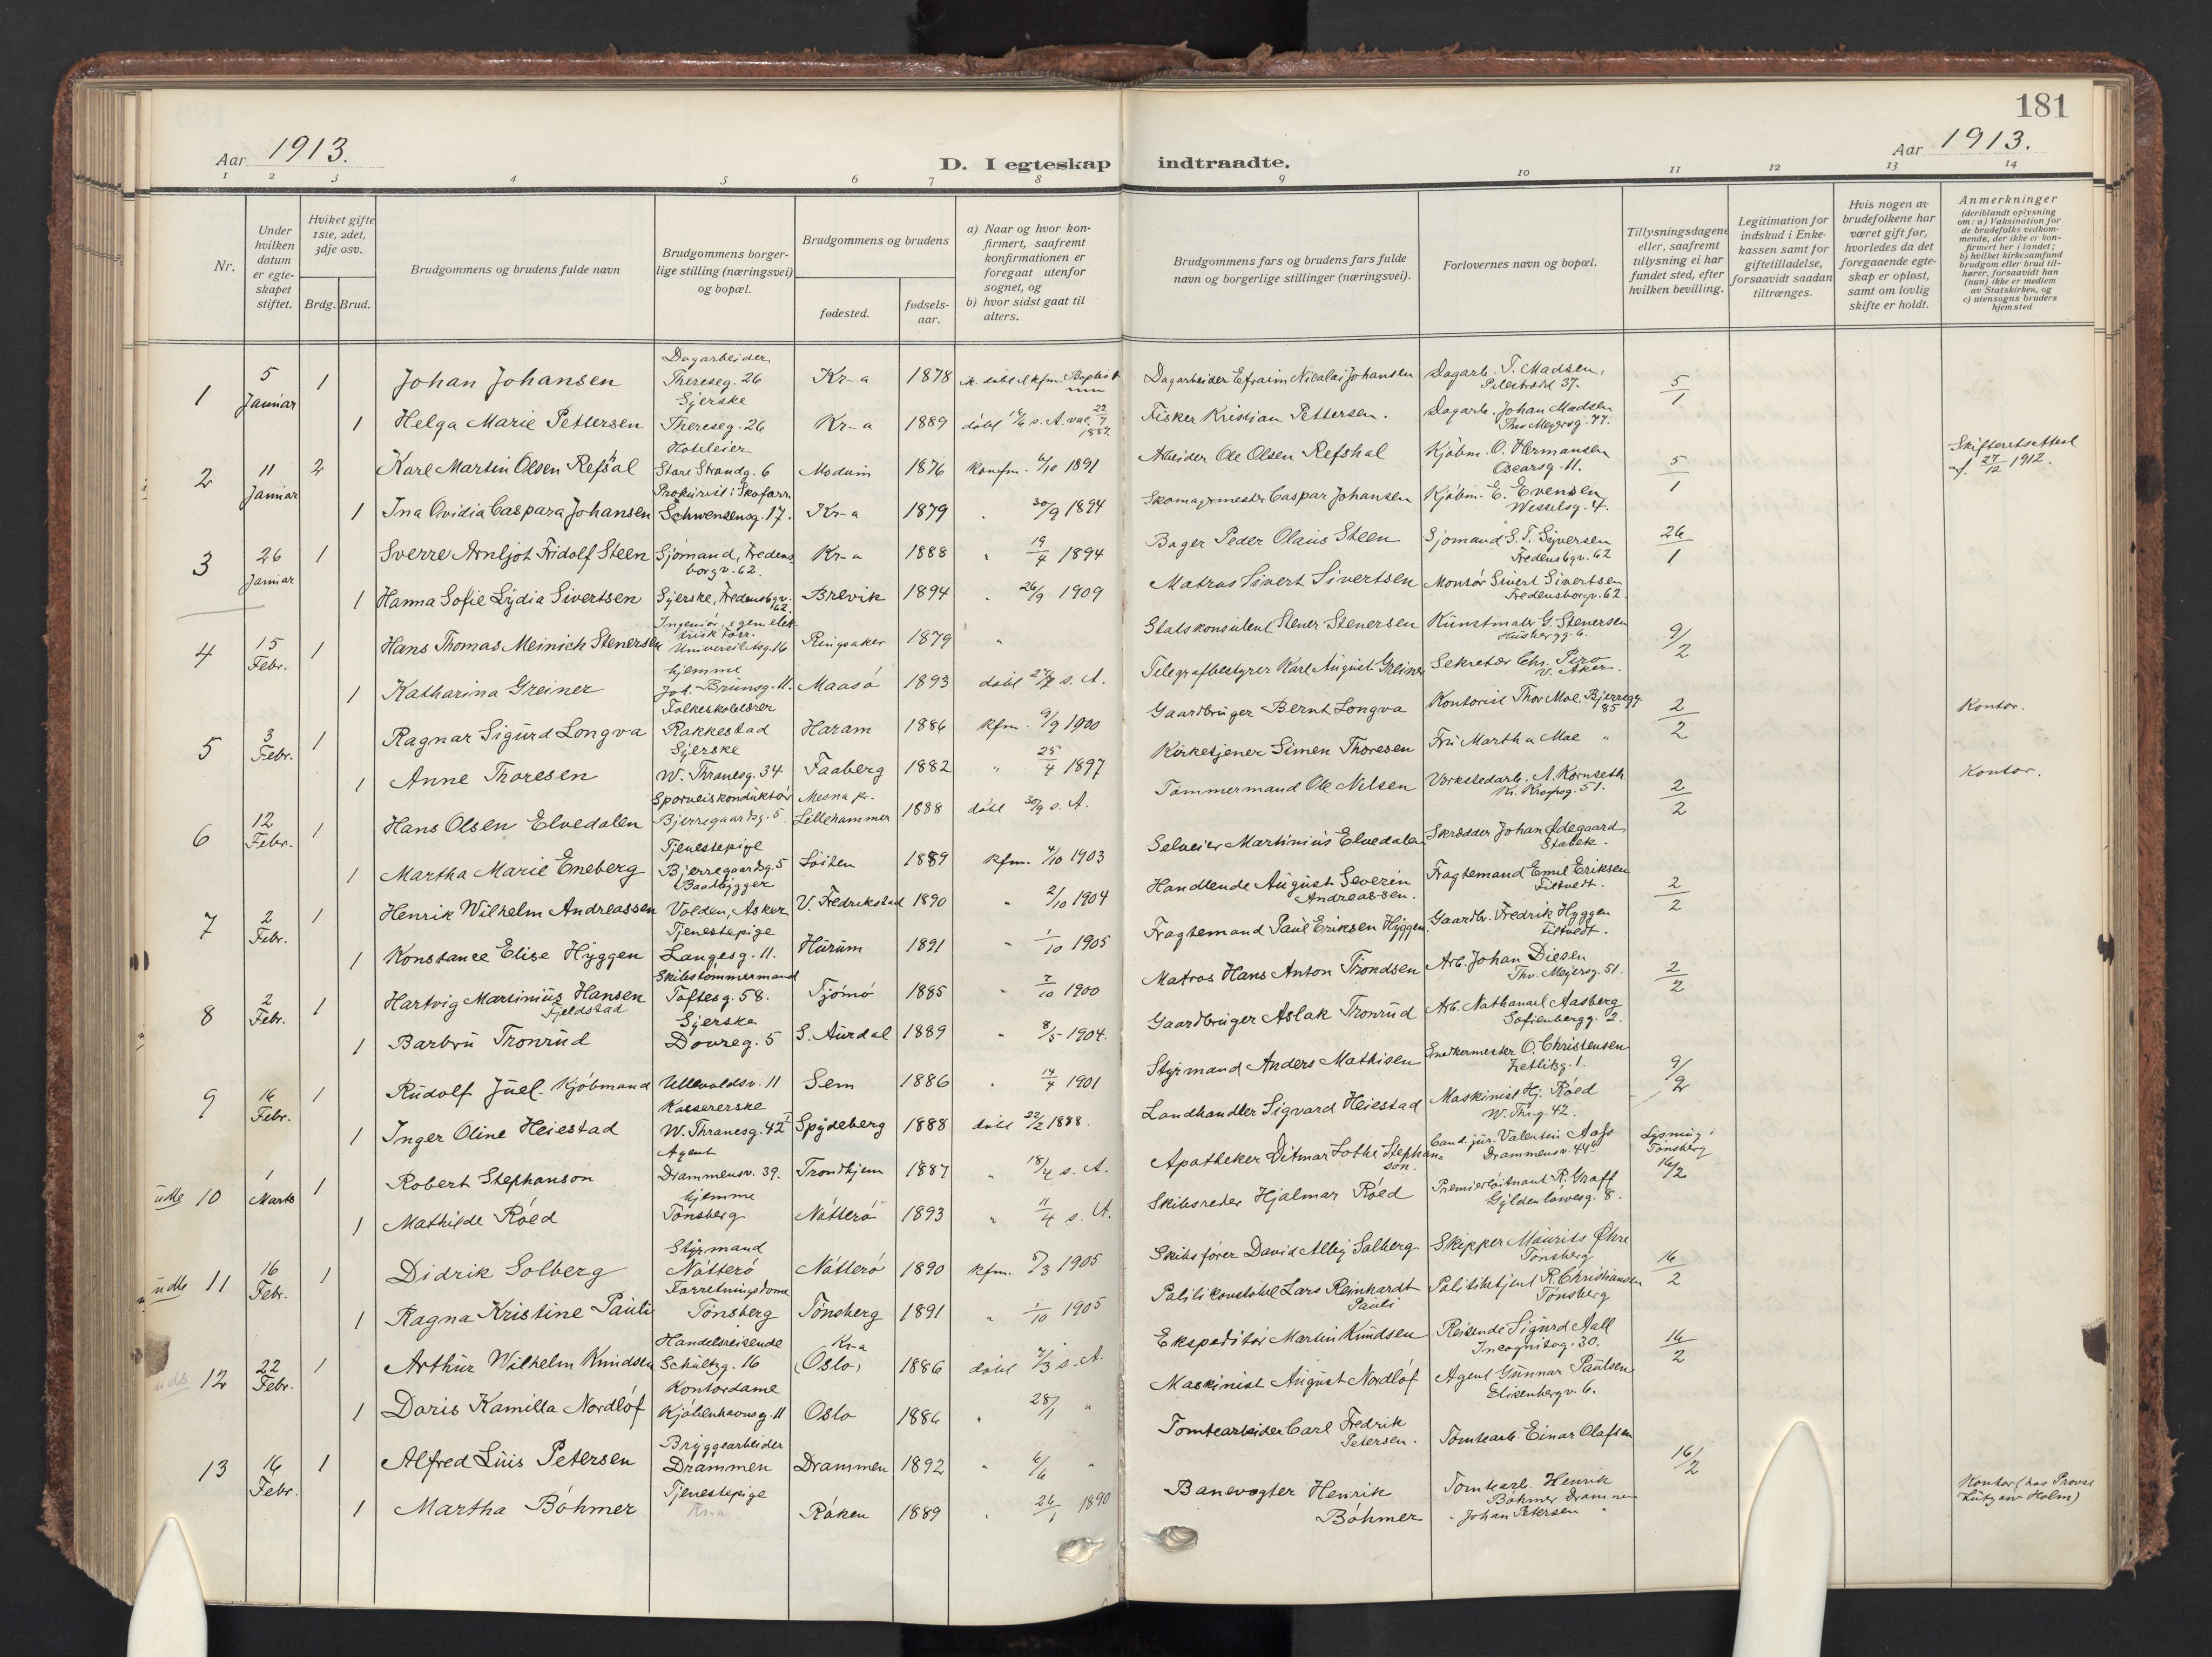 181
Aar 1913.
D. I egteskap indtraadte.
Aar 1913.
1 2 3 4 5 6 7 8 9 10 11 12 13 14
Nr.
Under hvilken datum er egteskapet stiftet.
Hviket gifte 1ste, 2det, 3dje osv.
Brdg. Brud.
Brudgommens og brudens fulde navn
Brudgommens borgerlige stilling (næringsvei) og bopæl.
Brudgommens og brudens
fødested.
fødselsaar.
a) Naar og hvor konfirmert, saafremt konfirmationen er foregaat utenfor sognet, og
b) hvor sidst gaat til alters.
Brudgommens fars og brudens fars fulde navn og borgerlige stillinger (næringsvei).
Forlovernes navn og bopæl.
Tillysningsdagene eller, saafremt tillysning ei har fundet sted, efter hvilken bevilling.
Legitimation for indskud i Enkekassen samt for giftetilladelse, forsaavidt saadan tiltrænges.
Hvis nogen av brudefolkene har været gift før, hvorledes da det foregaaende egteskap er opløst, samt om lovlig skifte er holdt.
Anmerkninger
(deriblandt oplysning om: a) Vaksination for de brudefolks vedkommende, der ikke er konfirmert her i landet; b) hvilket kirkesamfund brudgom eller brud tilhører, forsaavidt han (hun) ikke er medlem av Statskirken, og c) utensogns bruders hjemsted
1 5 Januar 1 Johan Johansen Dagarbeider Thereseg. 26 Kr-a 1878 Dagarbeider Efraim Nicolai Johansen Dagarb. T. Madsen, Pilestræde 37. 5/1
1 Helga Marie Pettersen Syerske Thereseg. 26 Kr-a 1889 Fisker Kristian Pettersen. Dagarb. Johan Madsen Thv Meyersg. 77.
2 11 Januar 2 Karl Martin Olsen Refsal Hoteleier Store Strandg. 6 Modum 1876 Konfm. 6/10 1891 Arbeider Ole Olsen Refshal Kjøbm. O. Hermansen Oscarsg. 11. 5/1 Skifteretsattest af. 27/12 1912.
1 Ina Ovidia Caspara Johansen Prokurist i Skoforr. Schwensensg. 17. Kr-a 1879 30/9 1894 Skomagermester Caspar Johansen Kjøbm. E. Evensen Wesselsg. 4.
3 26 Januar 1 Sverre Arnljot Fridolf Steen Sjømand, Fredensborgv. 62. Kr-a 1888 " 19/4 1894 Bager Peder Olaus Steen Sjømand S. T. Syversen Fredensbgv. 62 26/1
1 Hanna Sofie Lydia Sivertsen Syerske, Fredensbgv. 62. Brevik 1894 " 26/9 1909 Matros Sivert Sivertsen Montør Sivert Sivertsen Fredensborgv. 62.
4 15 Febr. 1 Hans Thomas Meinich Stenersen Ingeniør, egen elektrisk Forr. Universitetsg. 16 Ringsaker 1879 " Statskonsulent Stener Stenersen Kunstmaler G. Stenersen 9/2
1 Katharina Greiner hjemme Joh. Brunsg. 11. Maasø 1893 Telegrafbestyrer Karl August Greiner Sekretær Chr. Piro V. Aker.
5 3 Febr. 1 Ragnar Sigurd Longva Folkeskolelærer Rakkestad Haram 1886 kfm. 9/9 1900 Gaardbruger Bernt Longva Kontorist Thor Moe, Bjerregg. 85 2/2 Kontor.
1 Anne Thoresen Syerske W. Thranesg. 34 Faaberg 1882 " 25/4 1897 Kirketjener Simen Thoresen Fru Martha Moe "
6 12 Febr. 1 Hans Olsen Elvedalen Sporveiskonduktør Bjerregaardsg. 5 Mesna pr. Lillehammer 1888 døbt 30/9 s. A. Tømmermand Ole Nilsen Verkstedarb. A. Kornseth Kr. Krogsg. 51. 2/2 Kontor.
1 Martha Marie Eneberg Tjenestepige Bjerregaardsg. 5 Løiten 1889 kfm. 4/10 1903 Selveier Martinius Elvedalen Skrædder Johan Ødegaard Stabek.
7 2 Febr. 1 Henrik Wilhelm Andreassen Baadbygger Volden, Asker V. Fredrikstad 1890 " 2/10 1904 Handlende August Severin Andreassen. Fragtemand Emil Eriksen Filtvedt. 2/2
1 Konstance Elise Hyggen Tjenestepige Langesg. 11. Hurum 1891 " 1/10 1905 Fragtemand Paul Eriksen Hyggen. Gaardbr. Fredrik Hyggen Filtvedt.
8 2 Febr. 1 Hartvig Martinius Hansen Fjeldstad Skibstømmermand Toftesg. 58. Tjømø 1885 " 7/10 1900 Matros Hans Anton Trondsen Arb. Johan Diesen Thv. Meyersg. 51. 2/2
1 Barbru Tronrud Syerske Dovreg. 5 S. Aurdal 1889 " 8/5 1904. Gaardbruger Aslak Tronrud Arb. Nathanael Aasberg Sofienbergg. 2.
9 16 Febr. 1 Rudolf Juel. Kjøbmand Ullevoldsv. 11 Sem 1886 " 14/4 1901 Styrmand Anders Mathisen Snedkermester O. Christensen Zetlitzg. 1. 9/2
1 Inger Oline Heiestad Kassererske W. Thranesg. 42 I Spydeberg 1888 døbt 22/2 1888. Landhandler Sigvard Heiestad Maskinist Hj. Røed W. Thrg. 42.
udb 10 1 Marts 1 Robert Stephanson Agent Drammensv. 39. Trondhjem 1887 " 18/4 s. A. Apotheker Ditmar Lothe Stephanson. Cand. jur. Valentin Aass Drammensv. 44b Lysning i Tønsberg 16/2
1 Mathilde Røed hjemme Tønsberg Nøtterø 1893 " 11/4 s. A. Skibsreder Hjalmar Røed Premierløitnant R. Graff Gyldenløvesg. 8.
udb 11 16 Febr. 1 Didrik Solberg Styrmand Nøtterø Nøtterø 1890 kfm. 5/3 1905 Skibsfører David Solberg Skipper Maurits Øhre Tønsberg 16/2
1 Ragna Kristine Pauli Forretningsdame Tønsberg Tønsberg 1891 " 1/10 1905 Politikonstabel Lars Reinhardt Pauli Politibetjent R. Christiansen Tønsberg
uds 12 22 Febr. 1 Arthur Wilhelm Knudsen Handelsreisende Schultzg. 16 Kr-a (Oslo) 1886 døbt s. A. Ekspeditør Martin Knudsen Reisende Sigurd Aall Incognitog. 30. 16/2
1 Doris Kamilla Nordløf Kontordame Kjøbenhavnsg. 11 Oslo 1886 " 28/1 " Maskinist August Nordløf Agent Gunnar Paulsen Elisenbergv. 6.
13 16 Febr. 1 Alfred Luis Petersen Bryggearbeider Drammen Drammen 1892 " 6/6 " Tomtearbeider Carl Fredrik Petersen. Tomtearb. Einar Olafsen 16/2
1 Martha Bøhmer Tjenestepige Kr.a Røken 1889 " 26/1 1890 Banevogter Henrik Bøhmer Tomtearb. Henrik Bøhmer Drammen " Johan Petersen " Kontor (hos Provst Lützow Holm)